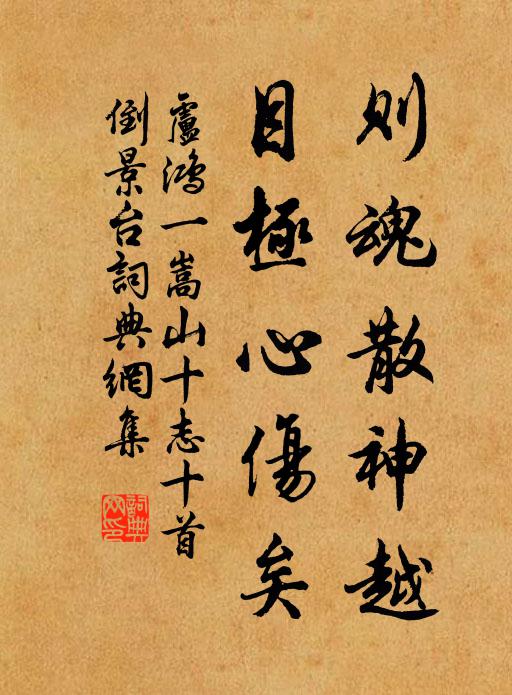 則魂散神越
目極心傷矣
盧鴻一嵩山十志十首
倒景台詞典網集
詞典网印